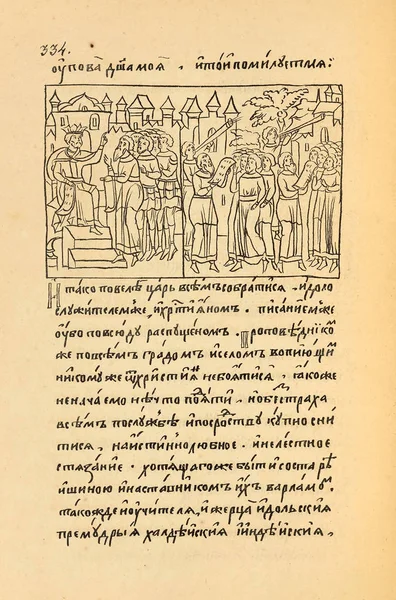 334.
оу̑пова̀ дш҃а моѧ̀ , и҆то́и поми́лꙋетмѧ :
И҆тако повелѣ̀ царь всѣ́мъ собра́тисѧ . и҆до́ло
слꙋжи́телемже , и҆хрⷭ҇тиа́номъ . писа́ниемже
оу҆́бо повсю́дꙋ распꙋ́щеномъ . Проповѣ́дникоⷨ
же повсѣ́мъ гра́домъ и҆се́ломъ вопию́щи
ни҆комꙋже ѿ христиа́нъ небоѧ́тисѧ , ꙗ҆́коже
неча́емо нѣ́что поѧ́ти , нобестра́ха
всѣ́мъ послꙋ́жбѣ и҆посро́дствꙋ кꙋ́пно сни
тисѧ , наи҆́стиннолюбное . и҆неле́стное
стѧза́ние . хотѧ́щагоже бы́ти состарѣ́
и҆шиною и҆наста́вникомъ и҆́хъ варлаа́моⷨ
та́кожде ноучи́телѧ , и҆жерца̀ и҆́дольскиѧ
премꙋ́дрыѧ халдѣ́йскиѧ и҆и҆ндѣ́йскиѧ ,